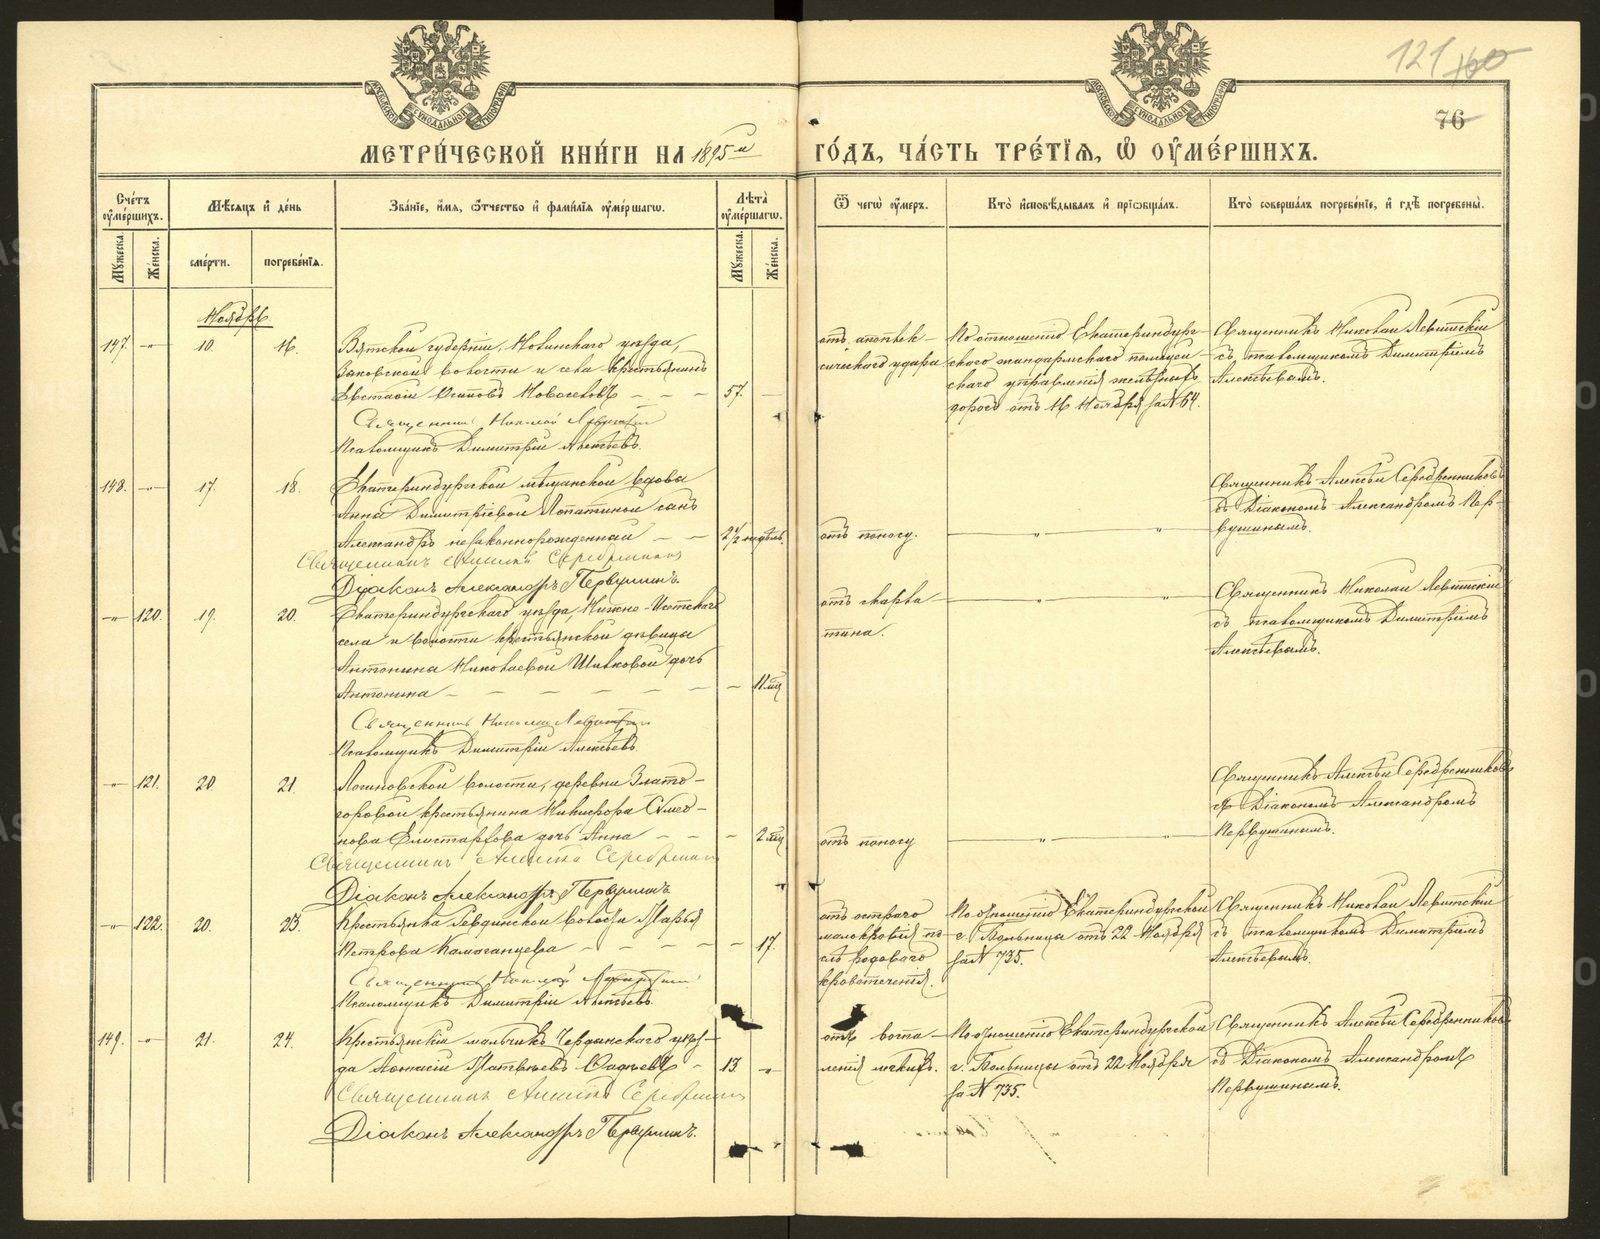 121
76
МЕТРИЧЕСКОЙ КНИГИ НА 1895й ГОДЪ, ЧАСТЬ ТРЕТІЯ, Ѡ ОУМЕРШИХЪ.
Счетъ оумершихъ.
Мѣсяцъ и день
Званіе, имя, ѿчество и фамилія оумершагѡ.
Лѣта оумершагѡ.
Ѿ чегѡ оумеръ.
Кто исповѣдывалъ и пріѡбщалъ.
Кто совершалъ погребеніе, и гдѣ погребены.
Мужеска.
Женска.
смерти.
погребенія.
Мужеска.
Женска.
Ноябрь
147. -"- 10. 16.
Вятской губерніи, уѣзда,
волости и села крестьянинъ
Евстафій Осиповъ Новоселовъ - - - 57. -
Священникъ Николай Левитскій
Псаломщикъ Димитрій Алексѣевъ.
отъ апоплек-
сическаго удара
По отношенію Екатеринбург-
скаго жандармскаго полицей-
скаго управленія желѣзныхъ
дорогъ отъ 16 Ноября за № 64.
Священникъ Николай Левитскій
съ псаломщикомъ Димитріемъ
Алексѣевымъ.
148. -"- 17. 18.
Екатеринбургской мѣщанской вдовы
Анны Димитріевой Лопатиной сынъ
Александръ незаконнорожденный - - 2½ недѣль.
Священникъ Алексѣй Серебренниковъ
Діаконъ Александръ Первушинъ.
отъ поносу.
Священникъ Алексѣй Серебренниковъ
съ Діакономъ Александромъ Пер-
вушинымъ.
-"- 120. 19. 20.
Екатеринбургскаго уѣзда, Нижне-Исетскаго
села и волости крестьянской дѣвицы
Антонины Николаевой дочь
Антонина - - - - - - - 11 мѣс
Священникъ Николай Левитскій
Псаломщикъ Димитрій Алексѣевъ
отъ скарла
тина.
Священникъ Николай Левитскій
съ псаломщикомъ Димитріемъ
Алексѣевымъ.
-"- 121. 20. 21.
Логиновской волости, деревни Злато-
горовой крестьянина Никифора Симео-
нова дочь Анна - - - 2 мѣс
Священникъ Алексѣй Серебренниковъ
Діаконъ Александръ Первушинъ.
отъ поносу
Священникъ Алексѣй Серебренниковъ
съ Діакономъ Александромъ
Первушинымъ.
-"- 122. 20. 23.
Крестьянка Ревдинской волости Марья
Петрова - - - - 17.
Священникъ Николай Левитскій
Псаломщикъ Димитрій Алексѣевъ.
отъ остраго
малокровія по-
слѣ родоваго
кровотеченія.
По отношенію Екатеринбургской
г. Больницы отъ 22 Ноября
за № 735.
Священникъ Николай Левитскій
съ псаломщикомъ Димитріемъ
Алексѣевымъ.
149. -"- 21. 24.
Крестьянскій мальчикъ Чердынскаго уѣз-
да Аѳанасій Матвѣевъ - 13 -"-
Священникъ Алексѣй Серебренниковъ
Діаконъ Александръ Первушинъ.
отъ воспа-
ленія легкихъ.
По отношенію Екатеринбургской
г. Больницы отъ 22 Ноября
за № 735.
Священникъ Алексѣй Серебренниковъ
съ Діакономъ Александромъ
Первушинымъ.